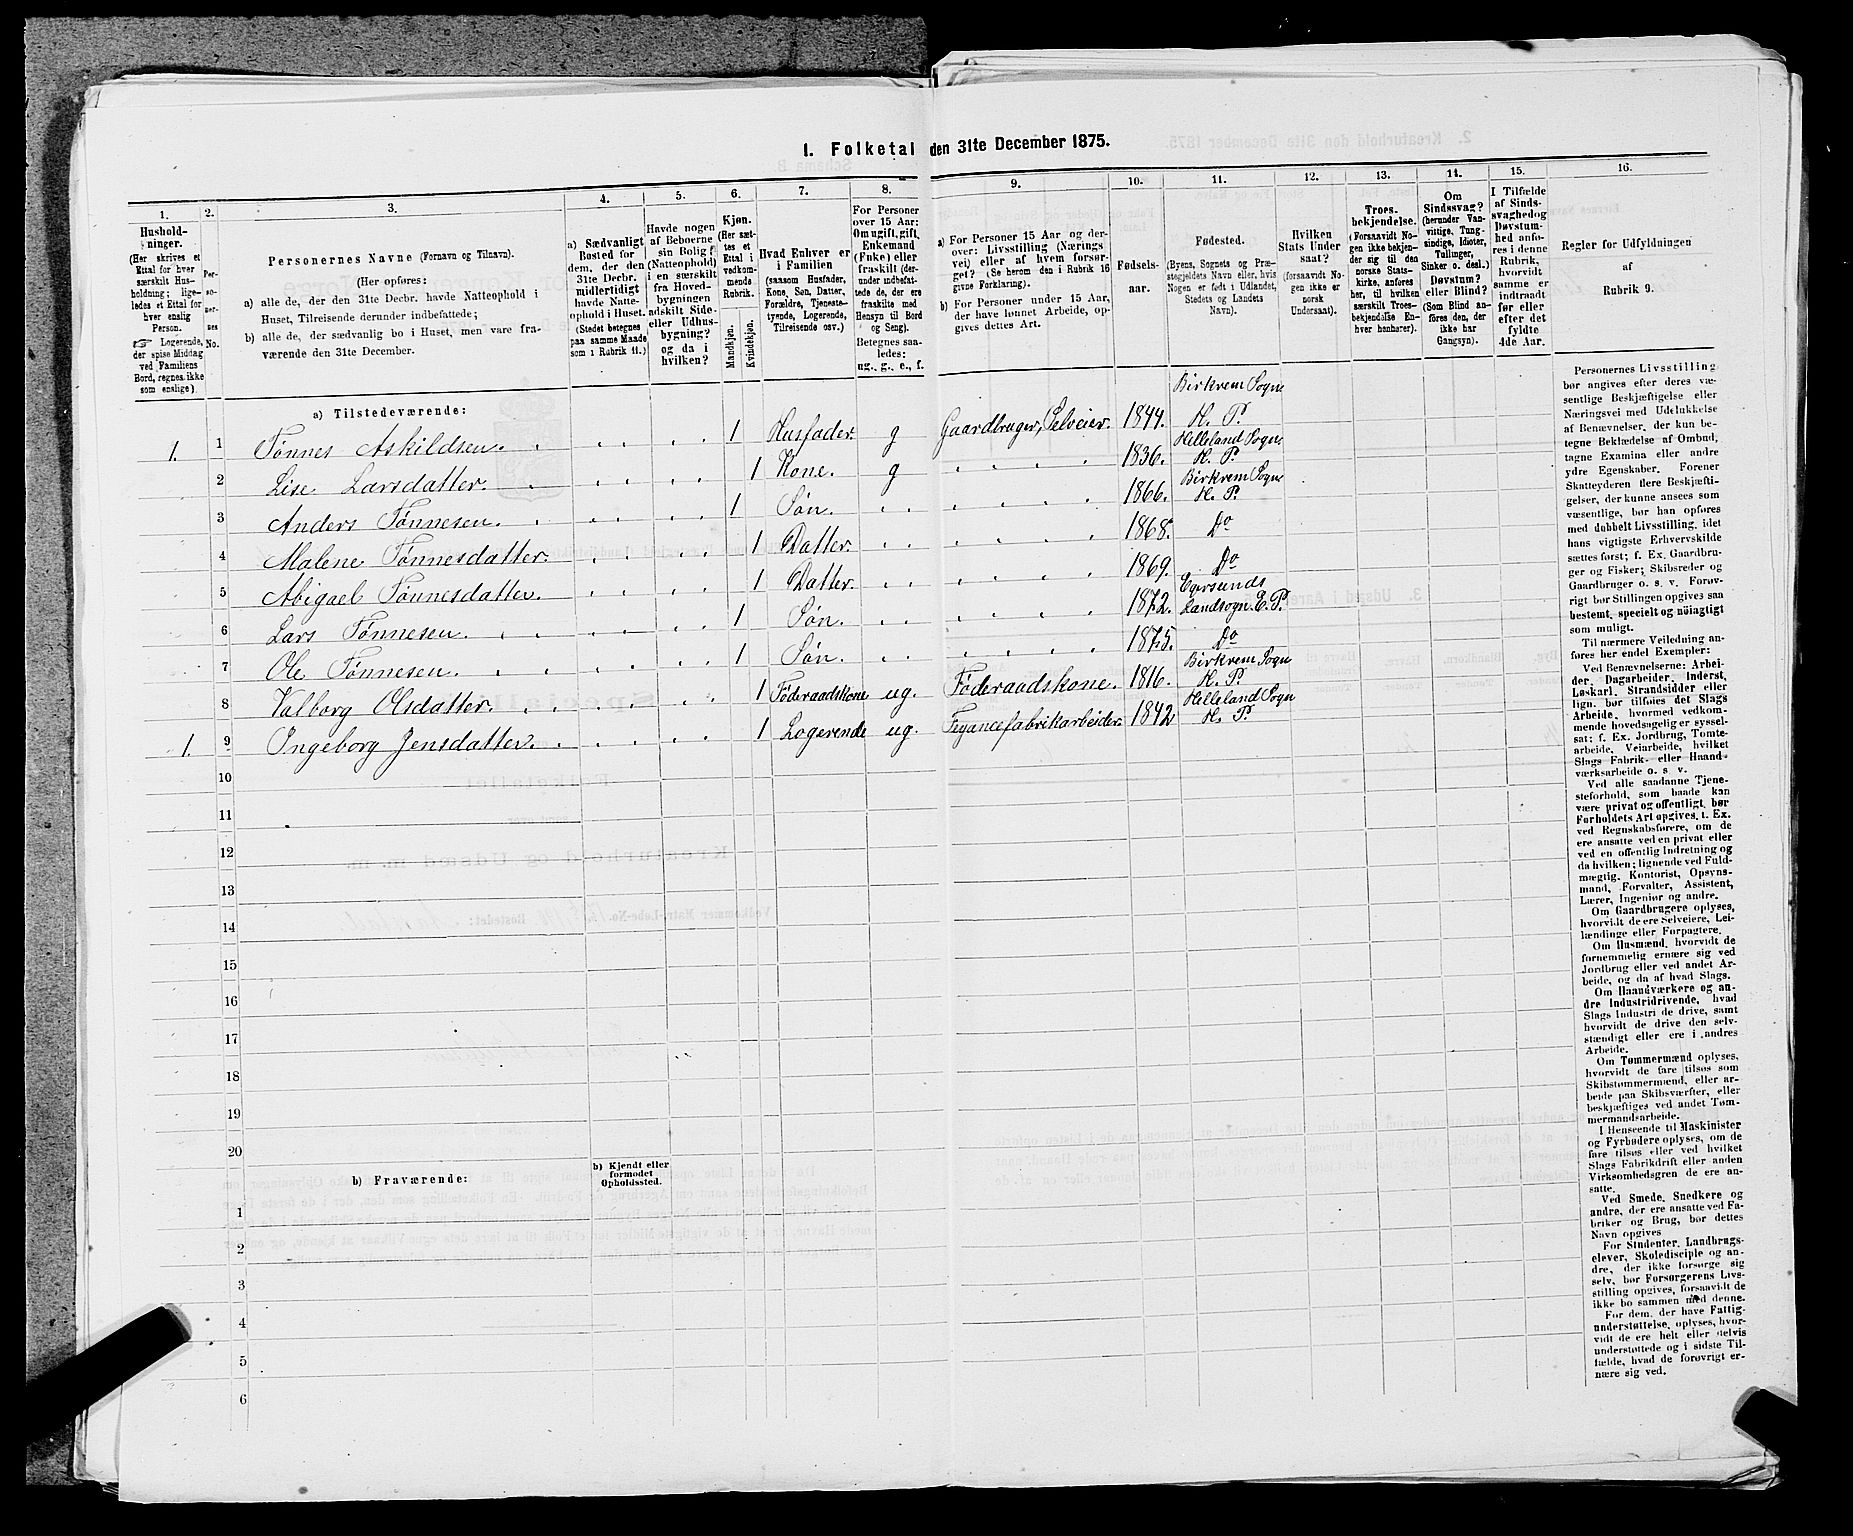 1. Folketal den 31te December 1875.
1. 2. 3. 4. 5. 6. 7. 8. 9. 10. 11. 12. 13. 14. 15. 16.
Hushold-
ninger.
(Her skrives et
Ettal for hver
særskilt Hus-
holdning; lige-
ledes et Ettal for
hver enslig
Person.
☞ Logerende,
der spise Middag
ved Familiens
Bord, regnes ikke
som enslige).
Per-
so-
ner-
nes
No.
Personernes Navne (Fornavn og Tilnavn).
(Her opføres:
a) alle de, der den 31te Decbr. havde Natteophold i
Huset, Tilreisende derunder indbefattede;
b) alle de, der sædvanlig bo i Huset, men vare fra-
værende den 31te December.
a) Sædvanligt
Bosted for
dem, der den
31te Decbr.
midlertidigt
havde Natte-
ophold i Huset.
(Stedet betegnes
paa samme Maade
som i Rubrik 11.)
Havde nogen
af Beboerne
sin Bolig
(Natteophold)
i en særskilt
fra Hoved-
bygningen
adskilt Side-
eller Udhus-
bygning?
og da i
hvilken?
Kjøn.
(Her sæt-
tes et
Ettal i
vedkom-
mende
Rubrik.
Mandkjøn.
Kvindekjøn.
Hvad Enhver er
i Familien
(saasom Husfader,
Kone, Søn, Datter,
Forældre, Tjeneste-
tyende, Logerende,
Tilreisende osv.)
For Personer
over 15 Aar:
Om ugift, gift,
Enkemand
(Enke) eller
fraskilt (der-
under indbefat-
tede de, der ere
fraskilte med
Hensyn til Bord
og Seng).
Betegnes saa-
ledes:
ug., g., e., f.
a) For Personer 15 Aar og der-
over: Livsstilling (Nærings-
vei) eller af hvem forsør-
get? (Se herom den i Rubrik 16
givne Forklaring).
b) For Personer under 15 Aar,
der have lønnet Arbeide, op-
gives dettes Art.
Fødsels-
aar.
Fødested.
(Byens, Sognets og Præ-
stegjeldets Navn eller, hvis
Nogen er født i Udlandet,
Stedets og Landets
Navn).
Hvilken
Stats Under-
saat?
(forsaavidt No-
gen ikke er
norsk
Undersaat).
Troes-
bekjendelse.
(Forsaavidt No-
gen ikke bekjen-
der sig til den
norske Stats-
kirke, anføres
her, til hvilken
særskilt Troes-
bekjendelse En-
hver henhører).
Om
Sindssvag?
(herunder Van-
vittige, Tung-
sindige, Idioter,
Tullinger,
Sinker o. desl.)
Døvstum?
eller Blind?
(Som Blind an-
føres den, der
ikke har
Gangsyn).
I Tilfælde
af Sinds-
svaghed og
Døvstum-
hed anfø-
res i denne
Rubrik,
hvorvidt
samme er
indtraadt
før eller
efter det
fyldte
4de Aar.
Regler for Udfyldningen
af
Rubrik 9.
a) Tilstedeværende:
1. 1 Tønnes Askildsen. 1 Husfader. g Gaardbruger, Selveier. 1844. Birkrem Sogn H. P.
2 Lise Larsdatter. 1 Kone. g 1836. Helleland Sogn H. P.
3 Anders Tønnesen. 1 Søn. 1866. Birkrem Sogn H. P.
4 Malene Tønnesdatter. 1 Datter. 1868. Do
5 Abigael Tønnesdatter. 1 Datter. 1869. Do
6 Lars Tønnesen. 1 Søn. 1872. Egersunds Landsogn. E. P.
7 Ole Tønnesen. 1 Søn. 1875. Do
8 Valborg Olsdatter. 1 Føderaadskone ug. Føderaadskone. 1816. Birkrem Sogn H. P.
1. 9 Ingeborg Jensdatter. 1 Logerende ug. Fayancefabrikarbeider. 1842 Helleland Sogn H. P.
10
11
12
13
14
15
16
17
18
19
20
b) Fraværende:
b) Kjendt eller
formodet
Opholdssted.
1
2
3
4
5
6
Personernes Livsstilling
bør angives efter deres væ-
sentlige Beskjæftigelse eller
Næringsvei med Udelukkelse
af Benævnelser, der kun be-
tegne Beklædelse af Ombud,
tagne Examina eller andre
ydre Egenskaber. Forener
Skatteyderen flere Beskjæfti-
gelser, der kunne ansees som
væsentlige, bør han opføres
med dobbelt Livsstilling, idet
hans vigtigste Erhvervskilde
sættes først; f. Ex. Gaardbru-
ger og Fisker; Skibsreder og
Gaardbruger o. s. v. Forøv-
rigt bør Stillingen opgives saa
bestemt, specielt og nøiagtigt
som muligt.
Til nærmere Veiledning an-
føres her endel Exempler:
Ved Benævnelserne: Arbei-
der, Dagarbeider, Inderst,
Løskarl, Strandsidder eller
lign. bør tilføies det Slags
Arbeide, hvormed vedkom-
mende hovedsagelig er syssel-
sat; f. Ex. Jordbrug, Tomte-
arbeide, Veiarbeide, hvilket
Slags Fabrik- eller Haand-
værksarbeide o. s. v.
Ved alle saadanne Tjene-
steforhold, som baade kan
være privat og offentligt, bør
Forholdets Art opgives, t. Ex.
ved Regnskabsførere, om de
ere ansatte ved en privat eller
ved en offentlig Indretning og
da hvilken; lignende ved Fuld-
mægtig, Kontorist, Opsyns-
mand, Forvalter, Assistent,
Lærer, Ingeniør og andre.
Om Gaardbrugere oplyses,
hvorvidt de ere Selveiere, Lei-
lændinge eller Forpagtere.
Om Husmænd, hvorvidt de
fornemmelig ernære sig ved
Jordbrug eller ved andet Ar-
beide, og da af hvad Slags.
Om Haandværkere og an-
dre Industridrivende, hvad
Slags Industri de drive, samt
hvorvidt de drive den selv-
stændigt eller ere i andres
Arbeide.
Om Tømmermænd oplyses,
hvorvidt de fare tilsøs som
Skibstømmermænd, eller ar-
beide paa Skibsværfter, eller
beskjæftiges ved andet Tøm-
mermandsarbeide.
I Henseende til Maskinister
og Fyrbødere oplyses, om de
fare tilsøs eller ved hvilket
Slags Fabrikdrift eller anden
Virksomhedsgren de ere an-
satte.
Ved Smede, Snedkere og
andre, der ere ansatte ved Fa-
briker og Brug, bør dettes
Navn opgives
For Studenter, Landbrugs-
elever, Skoledisciple og an-
dre, der ikke forsørge sig
selv, bør Forsørgerens Livs-
stilling opgives, forsaavidt de
ikke bo sammen med denne.
For dem, der have Fattig-
understøttelse, oplyses, hvor-
vidt de ere helt eller delvis
understøttede og i sidste Til-
fælde, hvad de forøvrigt er-
nære sig ved.